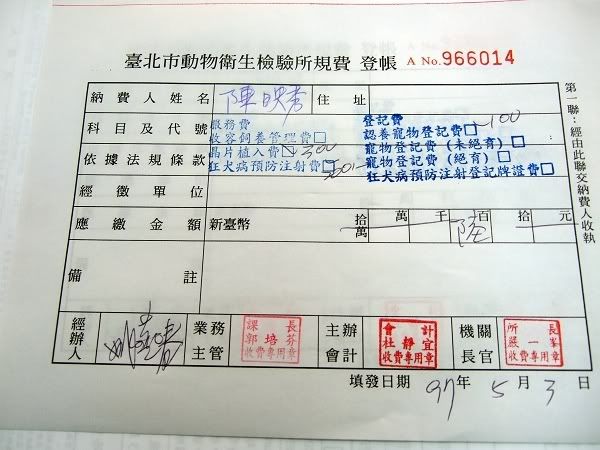 臺北市動物衛生檢驗所規費 登帳 A No.966014
納費人姓名 陳映秀 住址
科目及代號
依據法規條款
服務費
收容飼養管理費□
晶片植入費☑ 300
狂犬病預防注射費□ 200
登記費
認養寵物登記費□ 100
寵物登記費(未絕育)□
寵物登記費(絕育)□
狂犬病預防注射登記牌證費□
經徵單位
應繳金額 新臺幣 拾萬 萬 千 陸 百 拾 元
備註
經辦人
業務主管 課長 郭培芬 收費專用章
主辦會計 會計 杜靜宜 收費專用章
機關長官 所長 嚴一峯 收費專用章
填發日期 97年 5月 3日
第一聯:經由此聯交納費人收執